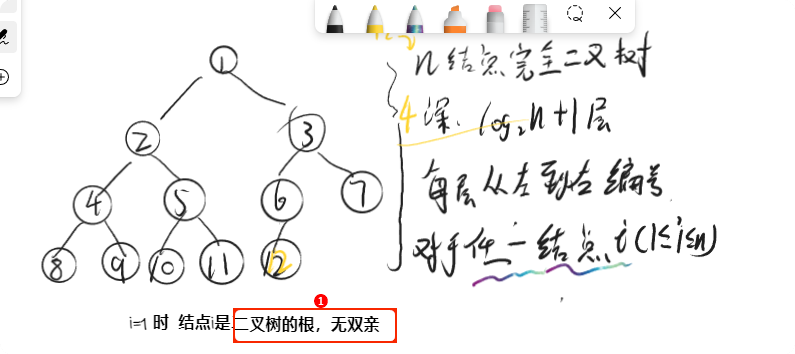 1
2 3
4 5 6 7
8 9 10 11 12
n结点完全二叉树
4 深 log₂n+1层
每层从左到右编号
对于任一结点i(1≤i≤n)
1
i=1 时 结点i是二叉树的根，无双亲